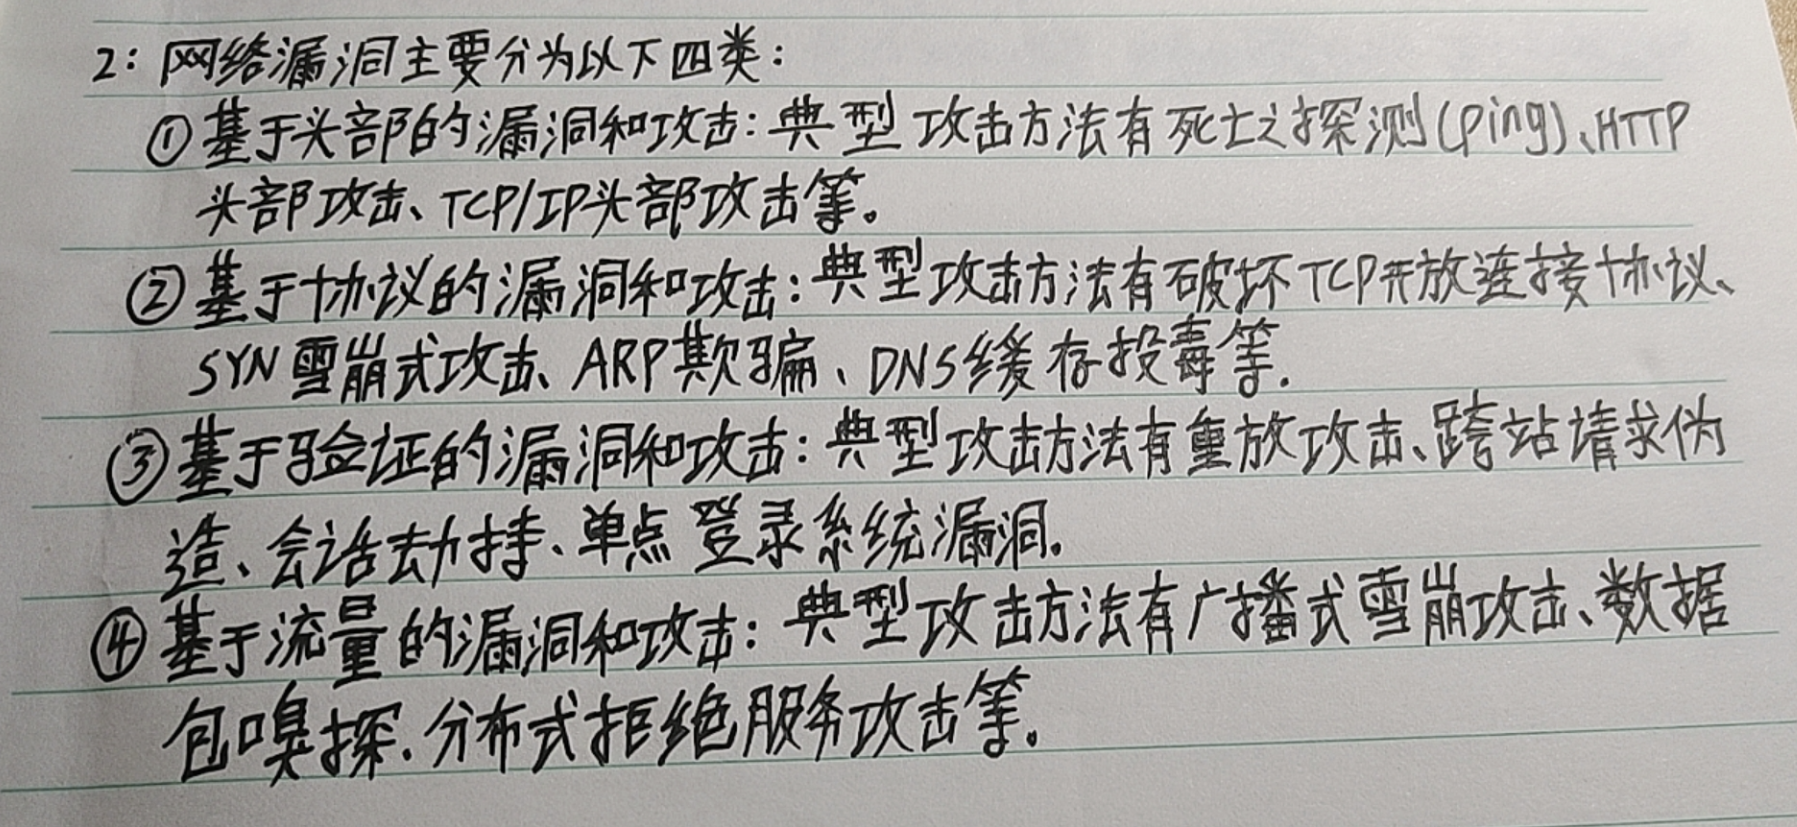 2：网络漏洞主要分为以下四类：
①基于头部的漏洞和攻击：典型攻击方法有死亡之探测(ping)、HTTP
头部攻击、TCP/IP头部攻击等。
②基于协议的漏洞和攻击：典型攻击方法有破坏TCP开放连接协议、
SYN雪崩式攻击、ARP欺骗、DNS缓存投毒等.
③基于验证的漏洞和攻击：典型攻击方法有重放攻击、跨站请求伪
造、会话劫持、单点登录系统漏洞。
④基于流量的漏洞和攻击：典型攻击方法有广播式雪崩攻击、数据
包嗅探.分布式拒绝服务攻击等。